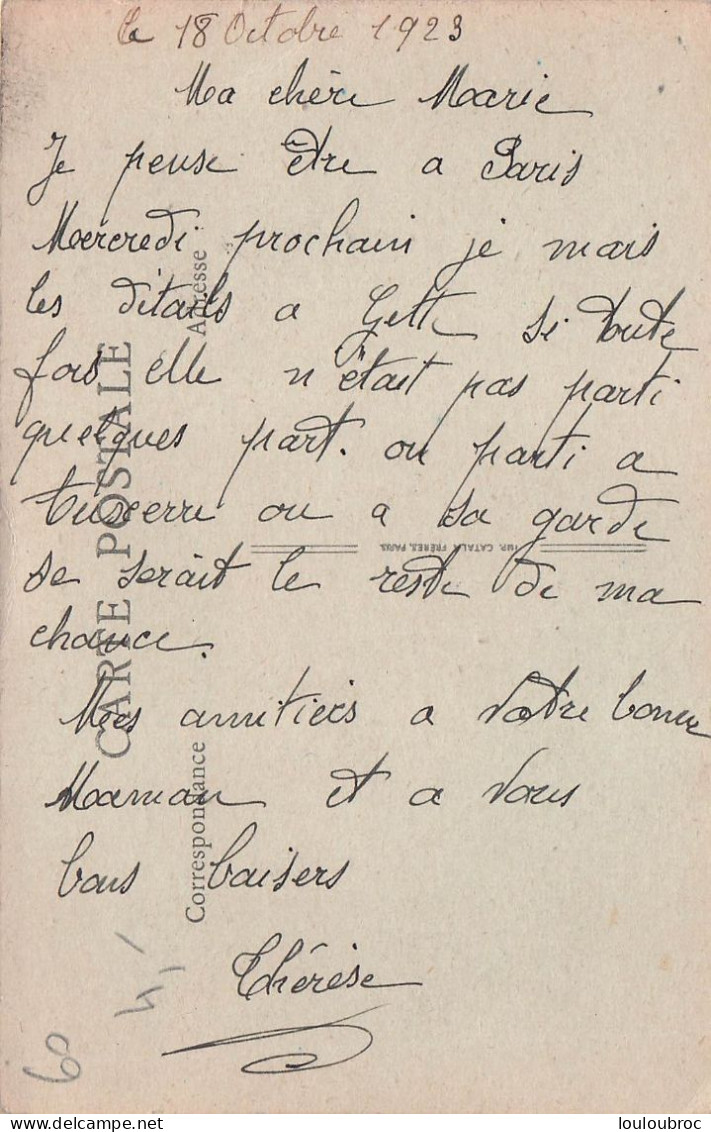 le 18 Octobre 1923
Ma chère Marie
Je pense être a Paris
Mercredi prochain je mais
les détails a si toute
fois elle n'était pas parti
quelques part. ou parti a
ou a sa garde
se serait le reste de ma
chance.
Mes amitiers a Votre bonne
Maman et a Vous
bons baisers
Thérèse
CARTE POSTALE
Correspondance
Adresse
IMP. CATALA FRÈRES, PARIS
60
louloubroc